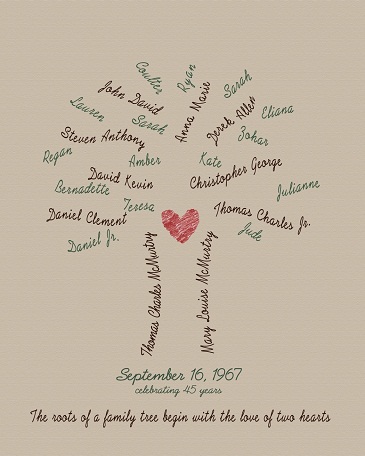 Coulter
Ryan
Sarah
John David
Anna Marie
Lauren
Sarah
Derek Allen
Eliana
Steven Anthony
Zohar
Regan
Amber
Kate
David Kevin
Christopher George
Bernadette
Julianne
Teresa
Daniel Clement
Thomas Charles Jr.
Daniel Jr.
Jude
Thomas Charles McMurtry
Mary Louise McMurtry
September 16, 1967
celebrating 45 years
The roots of a family tree begin with the love of two hearts